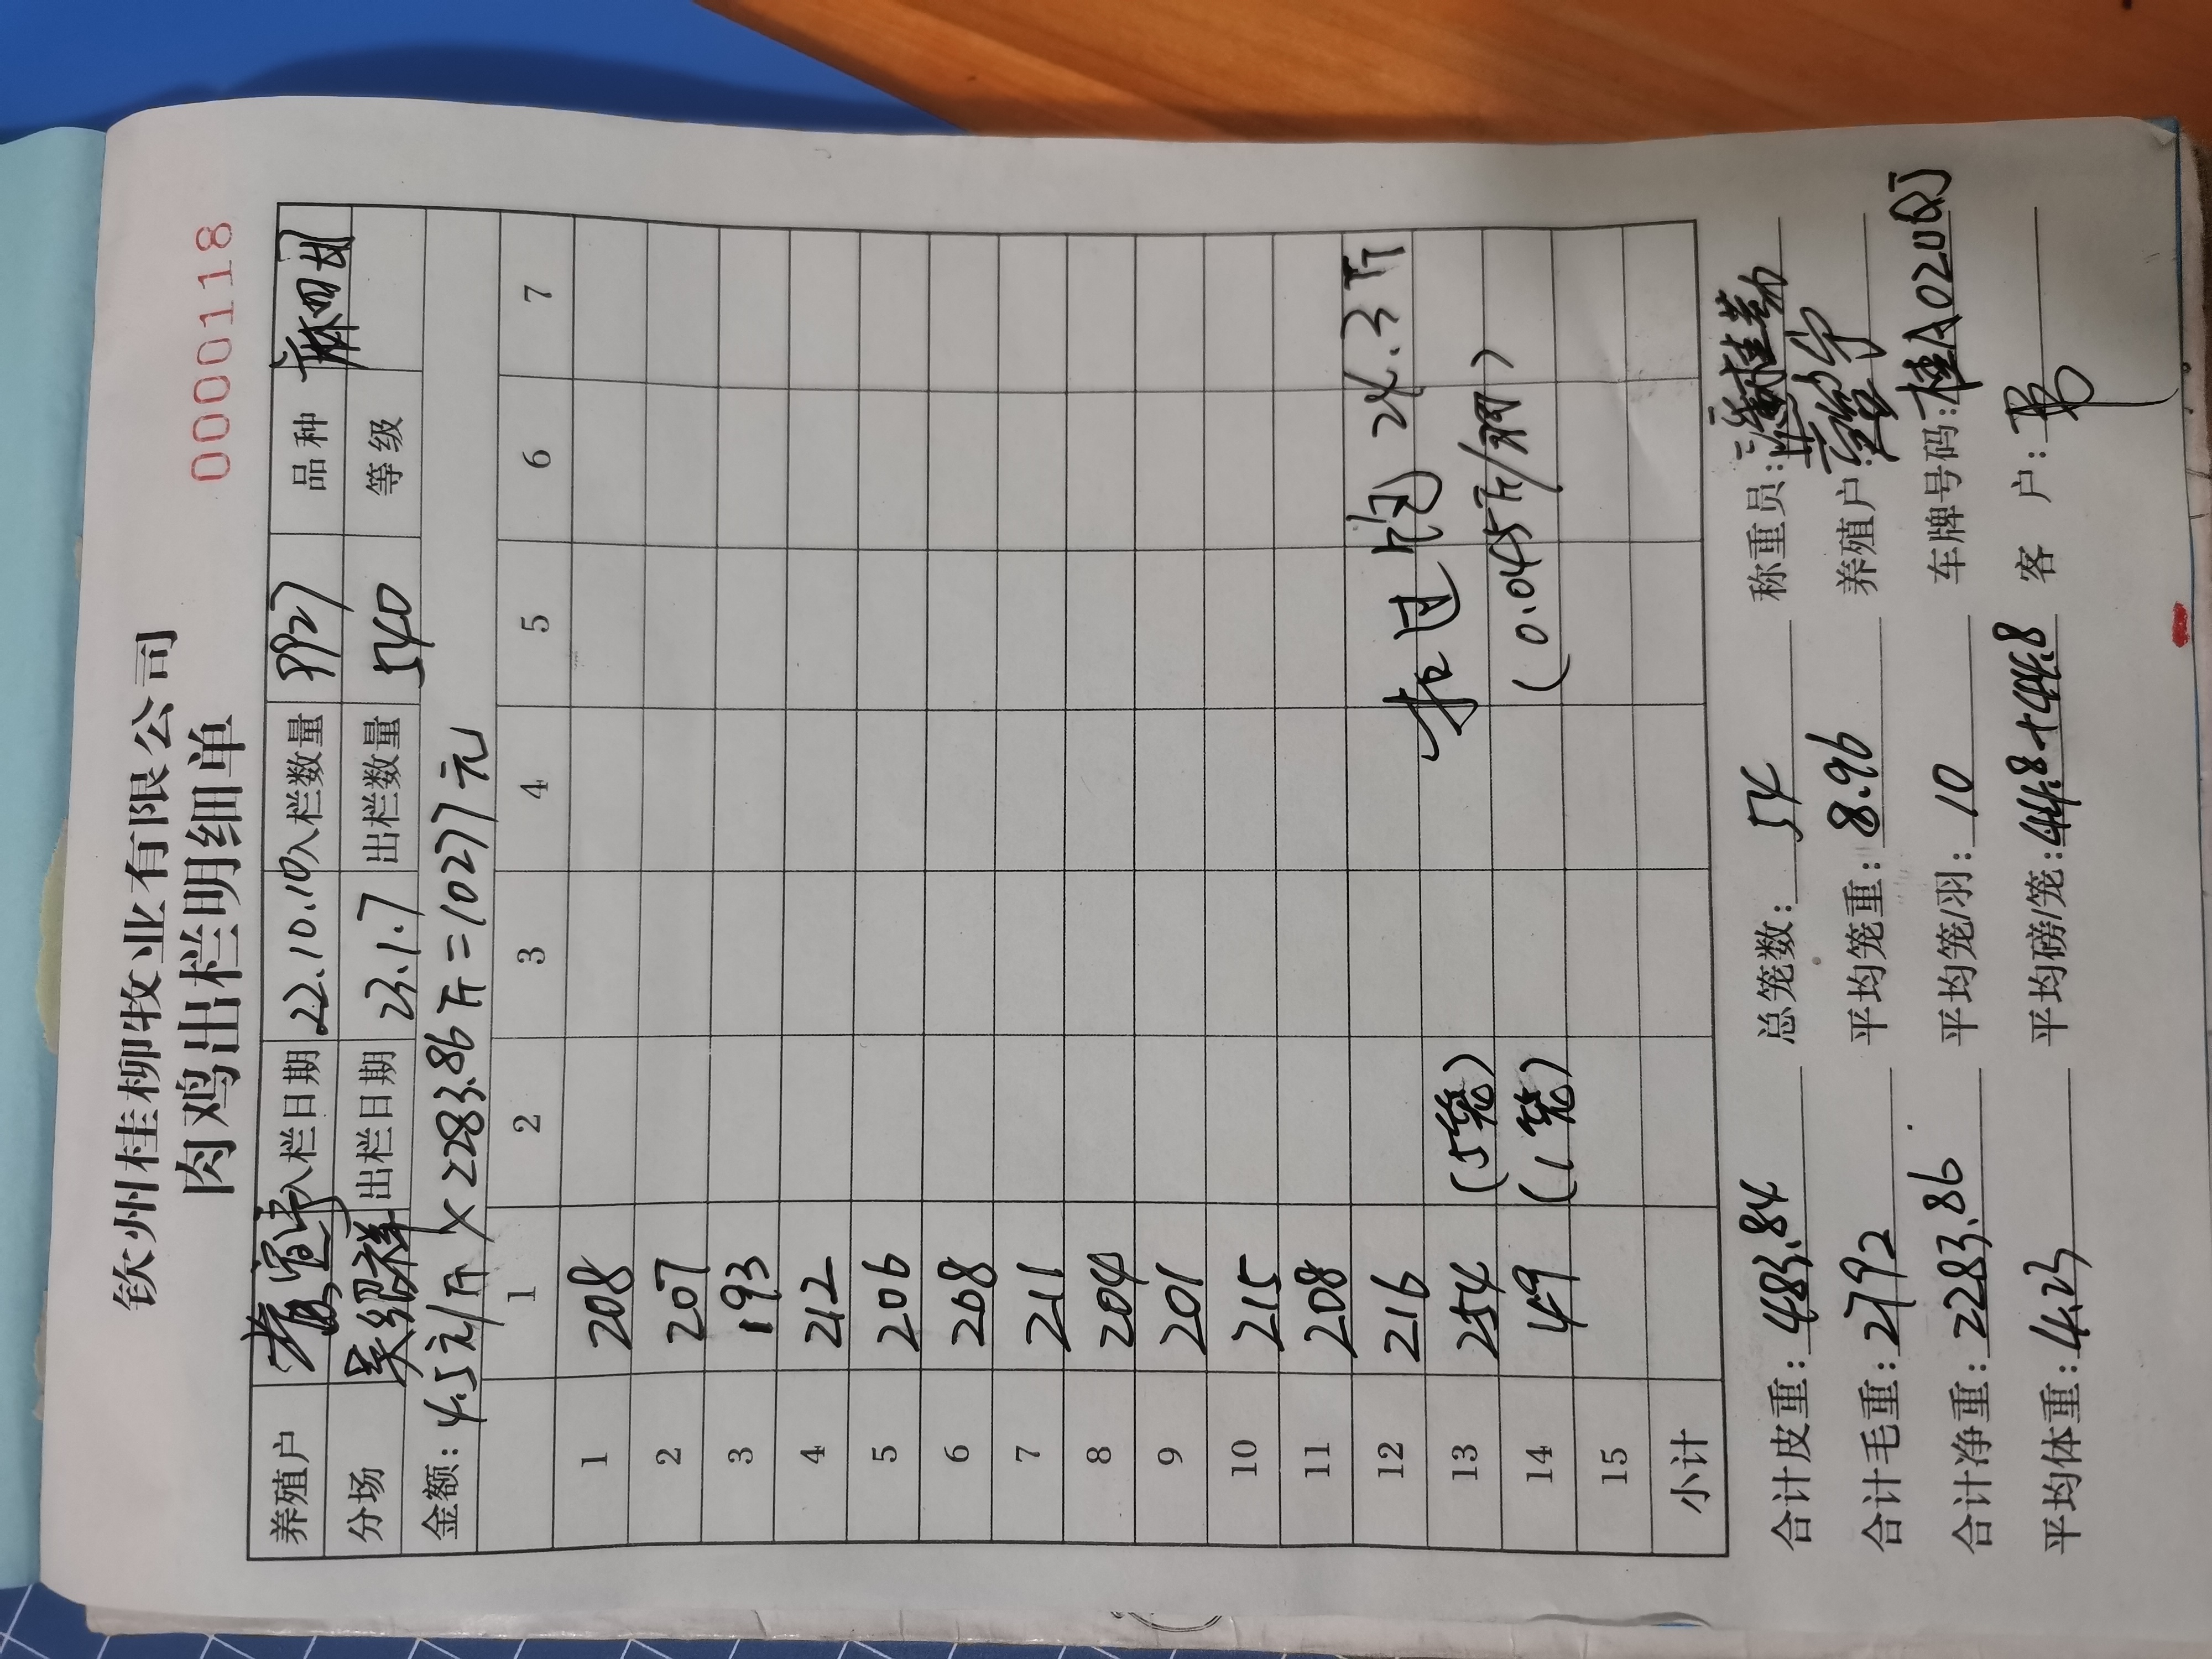 0000118
钦州桂柳牧业有限公司
肉鸡出栏明细单
养殖户 入栏日期 22.10.10 入栏数量 9927 品种 麻四母
分场 吴绍祥 出栏日期 23.1.7 出栏数量 540 等级
金额: 4.5元/斤 × 2283.86斤=10277元
1 2 3 4 5 6 7
1 208
2 207
3 193
4 212
5 206
6 208
7 211
8 204
9 201
10 215
11 208
12 216 扣过肉 24.3斤
13 254 (5笼)
14 49 (1笼) (0.045斤/羽)
15
小计
合计皮重: 483.84 总笼数: 54 称重员:
合计毛重: 2792 平均笼重: 8.96 养殖户:
合计净重: 2283.86 平均笼/羽: 10 车牌号码: 桂A02UQJ
平均体重: 4.23 平均磅/笼: 44.8+44.8 客户: